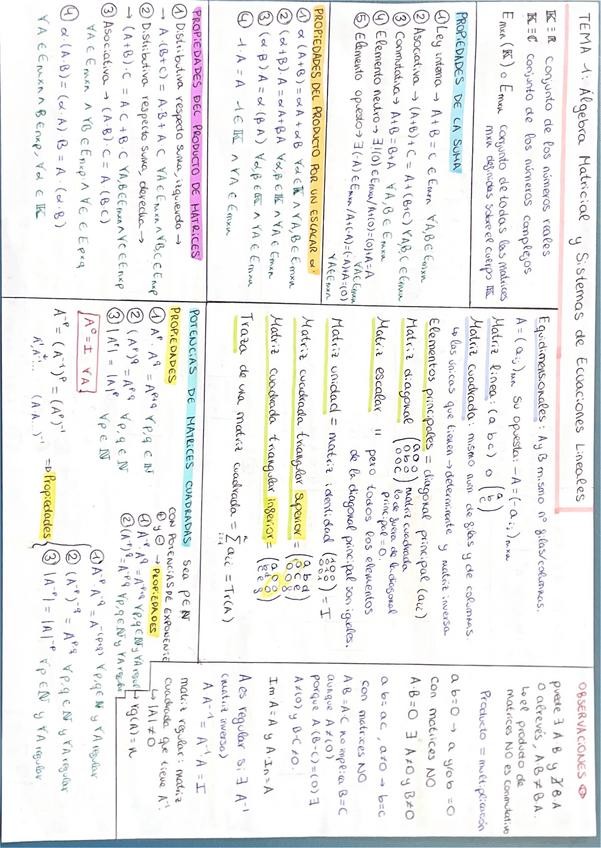 TEMA 1: Álgebra Matricial y Sistemas de Ecuaciones Lineales
K ≡ R conjunto de los números reales
K ≡ C conjunto de los números complejos
Emxn (K) o Emxn conjunto de todas las matrices
mxn definidas sobre el cuerpo K
PROPIEDADES DE LA SUMA
① Ley interna → A+B = C ∈ Emxn ∀A,B ∈ Emxn
② Asociativa → (A+B)+C = A+(B+C) ∀A,B,C ∈ Emxn
③ Conmutativa → A+B = B+A ∀A,B ∈ Emxn
④ Elemento neutro → ∃!(0) ∈ Emxn/A+(0)=(0)+A=A ∀A ∈ Emxn
⑤ Elemento opuesto → ∃(-A) ∈ Emxn/A+(-A)=(-A)+A=(0) ∀A ∈ Emxn
PROPIEDADES DEL PRODUCTO POR UN ESCALAR α:
① α(A+B) = αA+αB ∀α ∈ K ∧ ∀A,B ∈ Emxn
② (α+β)A = αA+βA ∀α,β ∈ K ∧ ∀A ∈ Emxn
③ (αβ)A = α(βA) ∀α,β ∈ K ∧ ∀A ∈ Emxn
④ 1·A = A 1 ∈ K ∧ ∀A ∈ Emxn
PROPIEDADES DEL PRODUCTO DE MATRICES
① Distributiva respecto suma, izquierda →
→ A·(B+C) = AB+AC ∀A ∈ Emxn ∧ ∀B,C ∈ Enxp
② Distributiva respecto suma, derecha →
→ (A+B)·C = AC+BC ∀A,B ∈ Emxn ∧ ∀C ∈ Enxp
③ Asociativa → (A·B)·C = A(BC)
∀A ∈ Emxn ∧ ∀B ∈ Enxp ∧ ∀C ∈ Epxq
④ α(A·B) = (α·A)B = A·(α·B)
∀A ∈ Emxn ∧ B ∈ Enxp, ∀α ∈ K
Equidimensionales: A y B mismo nº filas/columnas.
A=(aij)mxn su opuesta: -A=(-aij)mxn
Matriz línea: (a b c) o (a b c)
Matriz cuadrada: mismo num de filas y de columnas
↳ las únicas que tienen → determinante y matriz inversa
Elementos principales = diagonal principal (aii)
Matriz diagonal (a00 0b0 00c) matriz cuadrada
lo de fuera de la diagonal
principal = 0.
Matriz escalar " pero todos los elementos
de la diagonal principal son iguales.
Matriz unidad = matriz identidad (100 010 001) = I
Matriz cuadrada triangular superior = (abd 0ce 00f)
Matriz cuadrada triangular inferior =
Traza de una matriz cuadrada = Σ aii = Tr(A)
POTENCIAS DE MATRICES CUADRADAS sea p ∈ N
PROPIEDADES
① Aᵖ A^q = A^(p+q) ∀p,q ∈ N
② (Aᵖ)^q = A^(p·q) ∀p,q ∈ N
③ |Aᵖ| = |A|ᵖ ∀p ∈ N
A⁰ = I ∀A
A⁻ᵖ = (A⁻¹)ᵖ = (Aᵖ)⁻¹
CON POTENCIAS DE EXPONENTE
⊕ y ⊖ → PROPIEDADES
⇒ Propiedades
① A⁻ᵖ A^-q = A^-(p+q) ∀p,q ∈ N y ∀A regular
② (A⁻ᵖ)^-q = A^(p·q) ∀p,q ∈ N y ∀A regular
③ |A⁻ᵖ| = |A|⁻ᵖ ∀p ∈ N y ∀A regular
OBSERVACIONES
puede ∃ A·B y ∄ B·A
o al revés, AB ≠ BA.
↳ el producto de
matrices NO es conmutativo
Producto = multiplicación
ab=0 → a y/o b = 0
con matrices NO
A·B=0 ∃ A≠0 y B≠0
ab = ac, a≠0 → b=c
con matrices NO
AB = A·C no implica B=C
aunque A≠(0)
porque A(B-C)=(0) ∃
A≠(0) y B-C≠0.
Im A = A y A·In = A
A es regular si ∃ A⁻¹
(matriz inversa)
A A⁻¹ = A⁻¹ A = I
matriz regular: matriz
cuadrada que tiene A⁻¹.
↳ |A| ≠ 0
↳ rg(A) = n